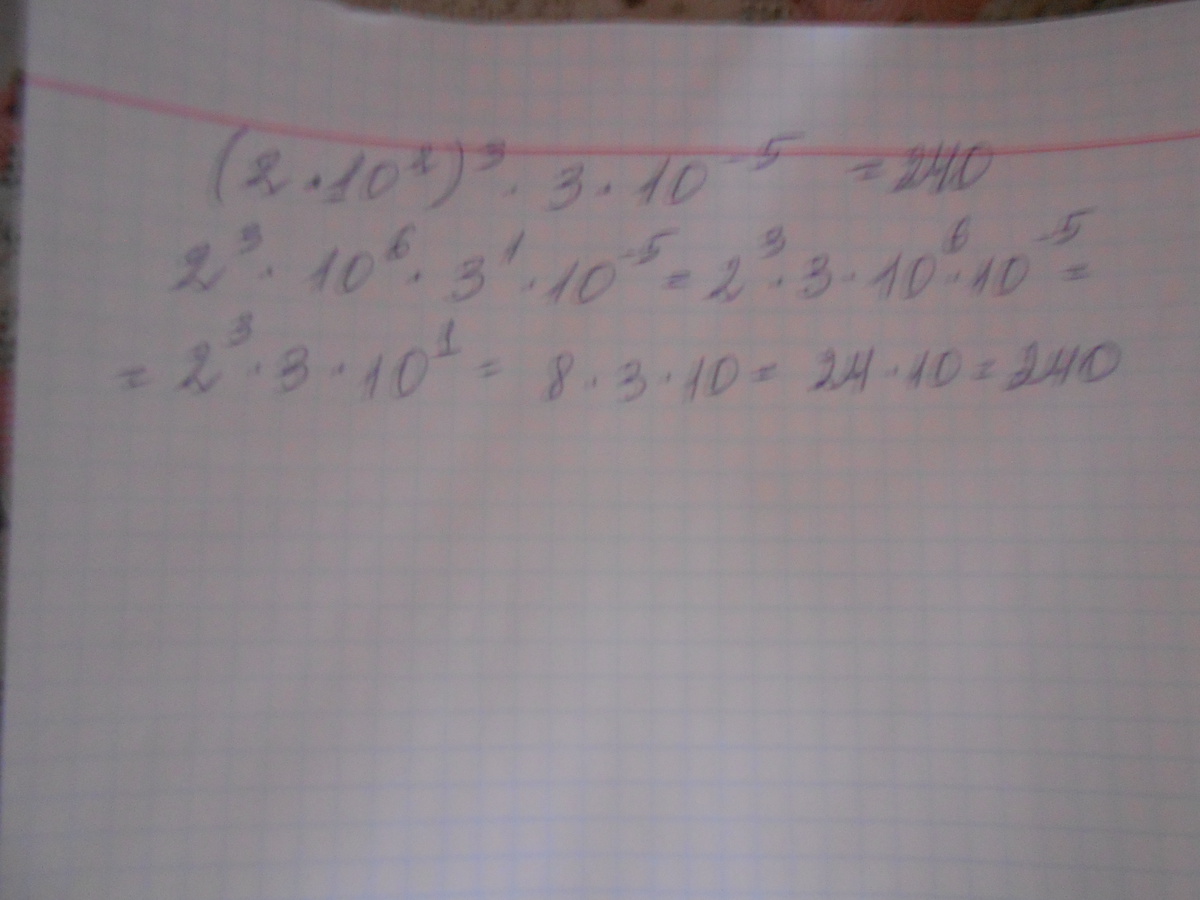 (2·10²)³·3·10⁻⁵ = 240
2³·10⁶·3¹·10⁻⁵ = 2³·3·10⁶·10⁻⁵ =
= 2³·3·10¹ = 8·3·10 = 24·10 = 240